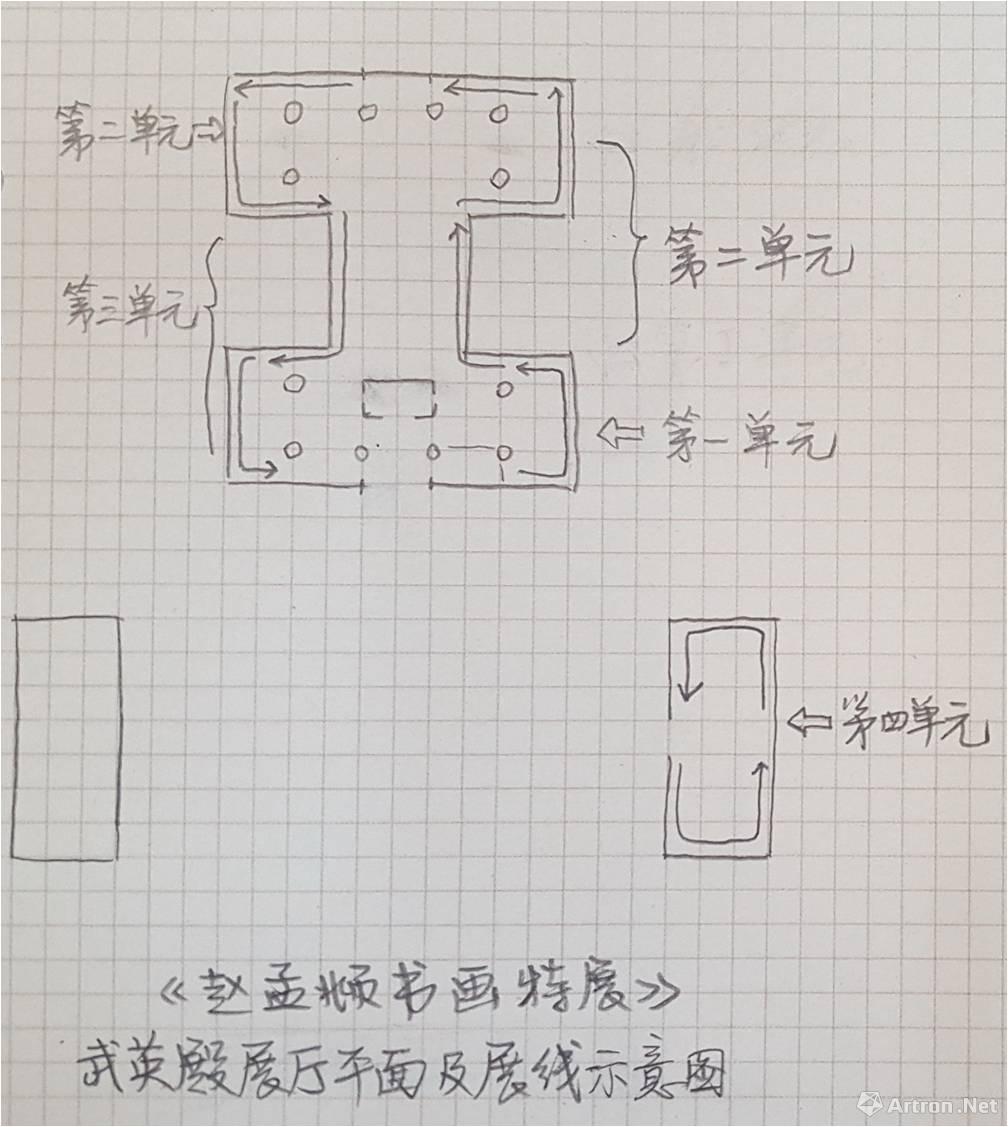 第二单元
第二单元
第三单元
第一单元
第四单元
《赵孟頫书画特展》
武英殿展厅平面及展线示意图
Artron.Net